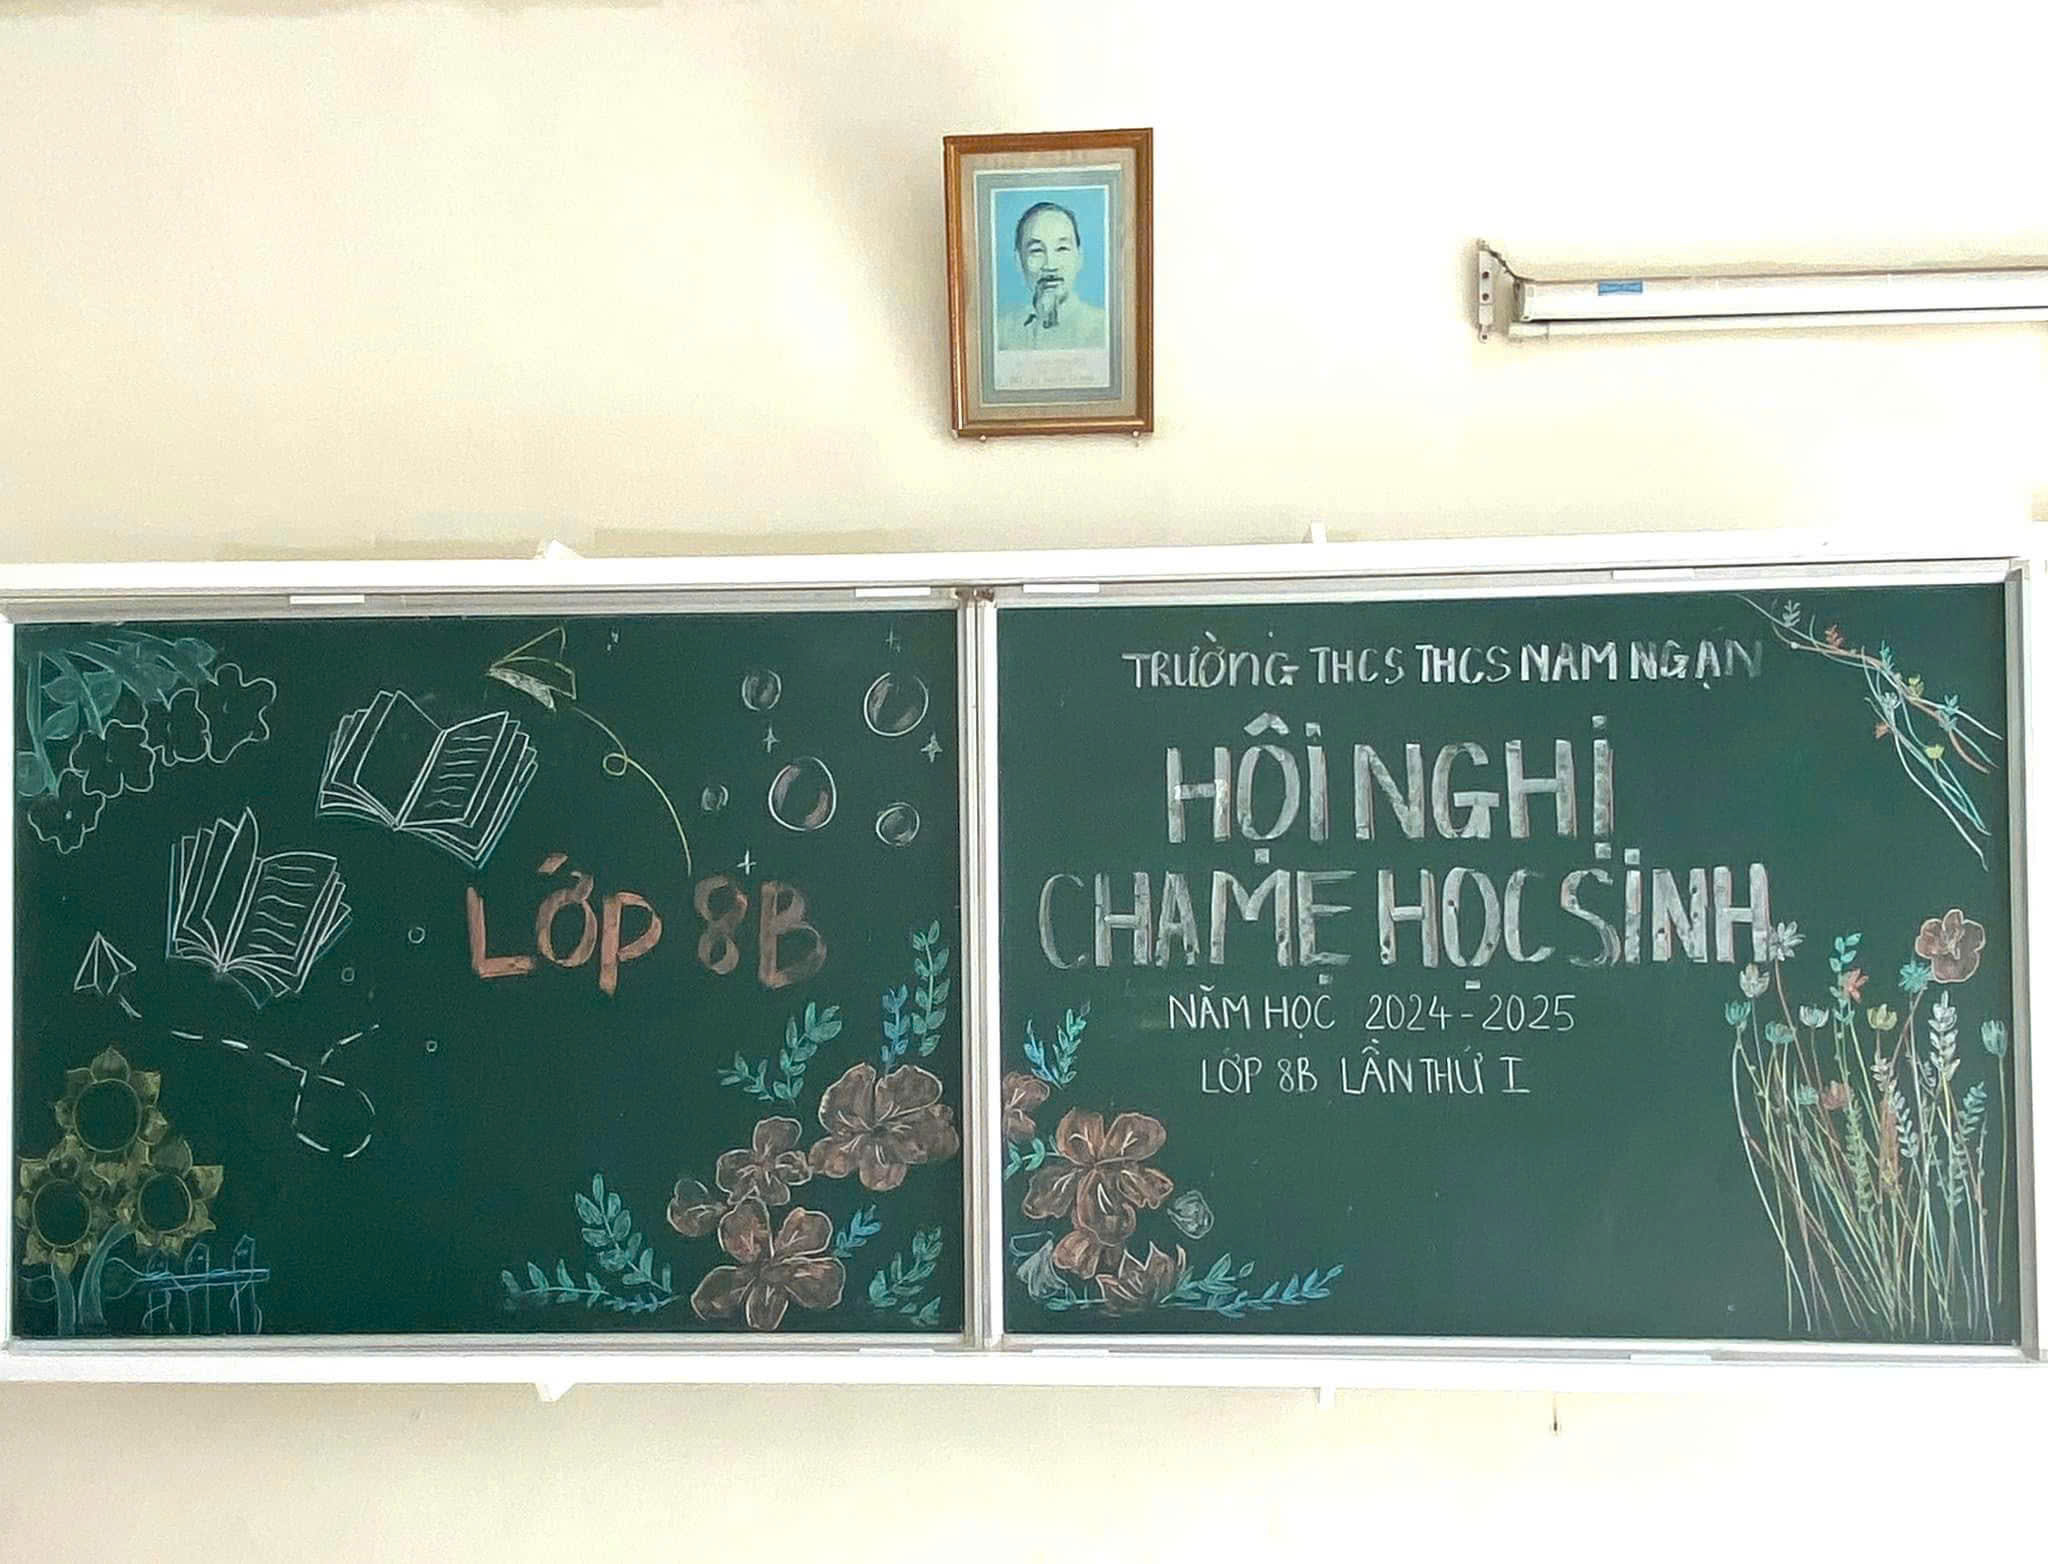 LỚP 8B
TRƯỜNG THCS THCS NAM NGẠN
HỘI NGHỊ
CHA MẸ HỌC SINH
NĂM HỌC 2024-2025
LỚP 8B LẦN THỨ I